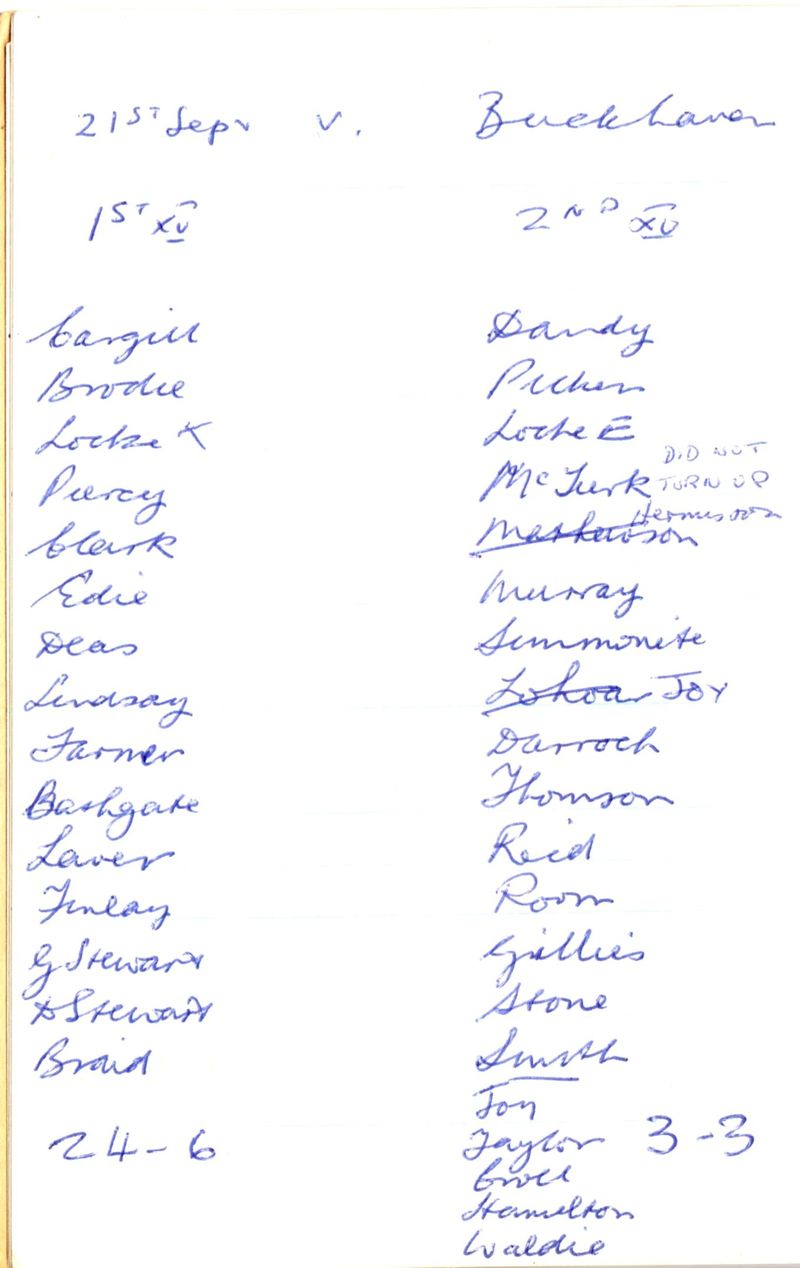 21ST Sept v. Buckhaven
1ST XV
2ND XV
Cargill
Brodie
Locke K
Piercy
Clark
Edie
Deas
Lindsay
Farmer
Bathgate
Laver
Finlay
G Stewart
D Stewart
Braid
24-6
Dandy
Picken
Locke E
McTurk DID NOT
TURN UP
Mathewson Hermiston
Murray
Simmonite
Joy
Darroch
Thomson
Reid
Room
Gillies
Stone
Smith
Joy
Taylor 3-3
Croll
Hamilton
Waldie